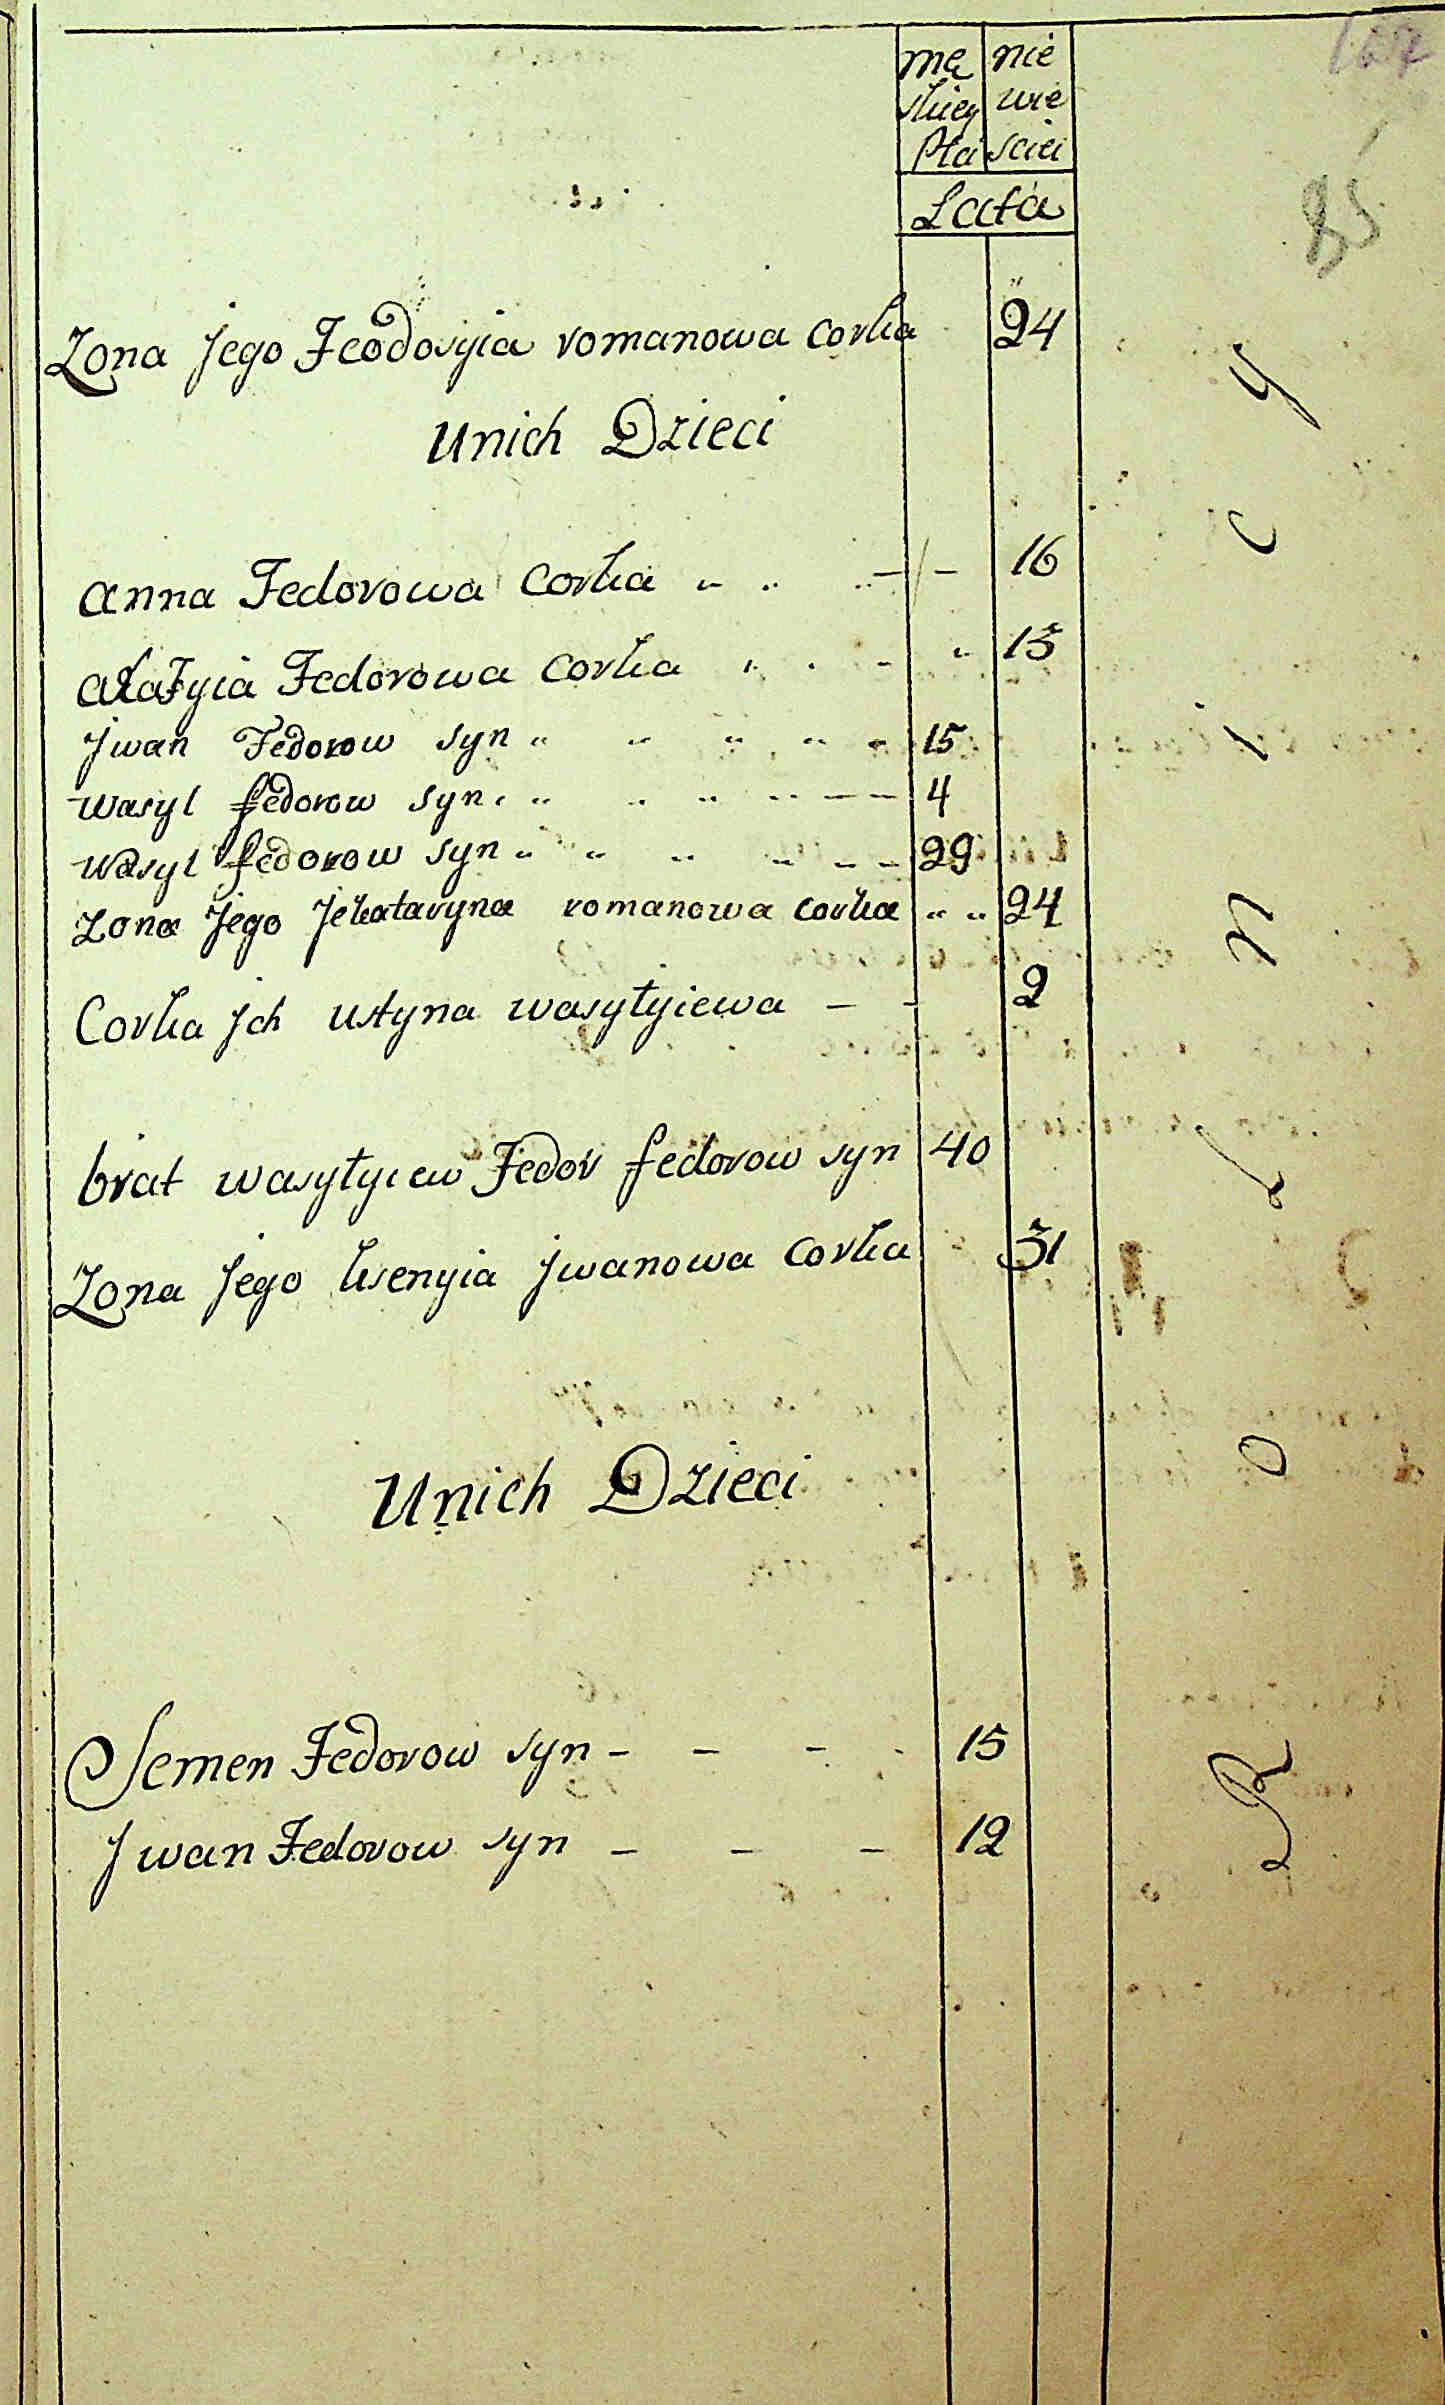 mę nie
skiey wie
Płci sciei
Lata
85
Zona jego Feodosyia romanowa Corka 24
Unich Dzieci
Anna Fedorowa Corka 16
Fedorowa Corka 13
Jwan Fedorow syn 15
Wasyl fedorow syn 4
Wasyl fedorow syn 29
Zona jego Jekataryna romanowa corka 24
Corka jch ustyna wasyłyiewa 2
brat wasyłyiew Fedor fedorow syn 40
Zona jego ksenyia jwanowa Corka 31
Unich Dzieci
Semen Fedorow syn 15
Jwan Fedorow syn 12
Rolnicy